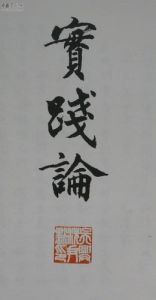 實踐論